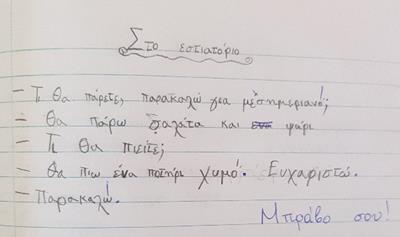 Στο εστιατόριο
– Τι θα πάρετε, παρακαλώ για μεσημεριανό;
– Θα πάρω σαλάτα και ψάρι
– Τι θα πιείτε;
– Θα πιω ένα ποτήρι χυμό. Ευχαριστώ.
– Παρακαλώ!
Μπράβο σου!